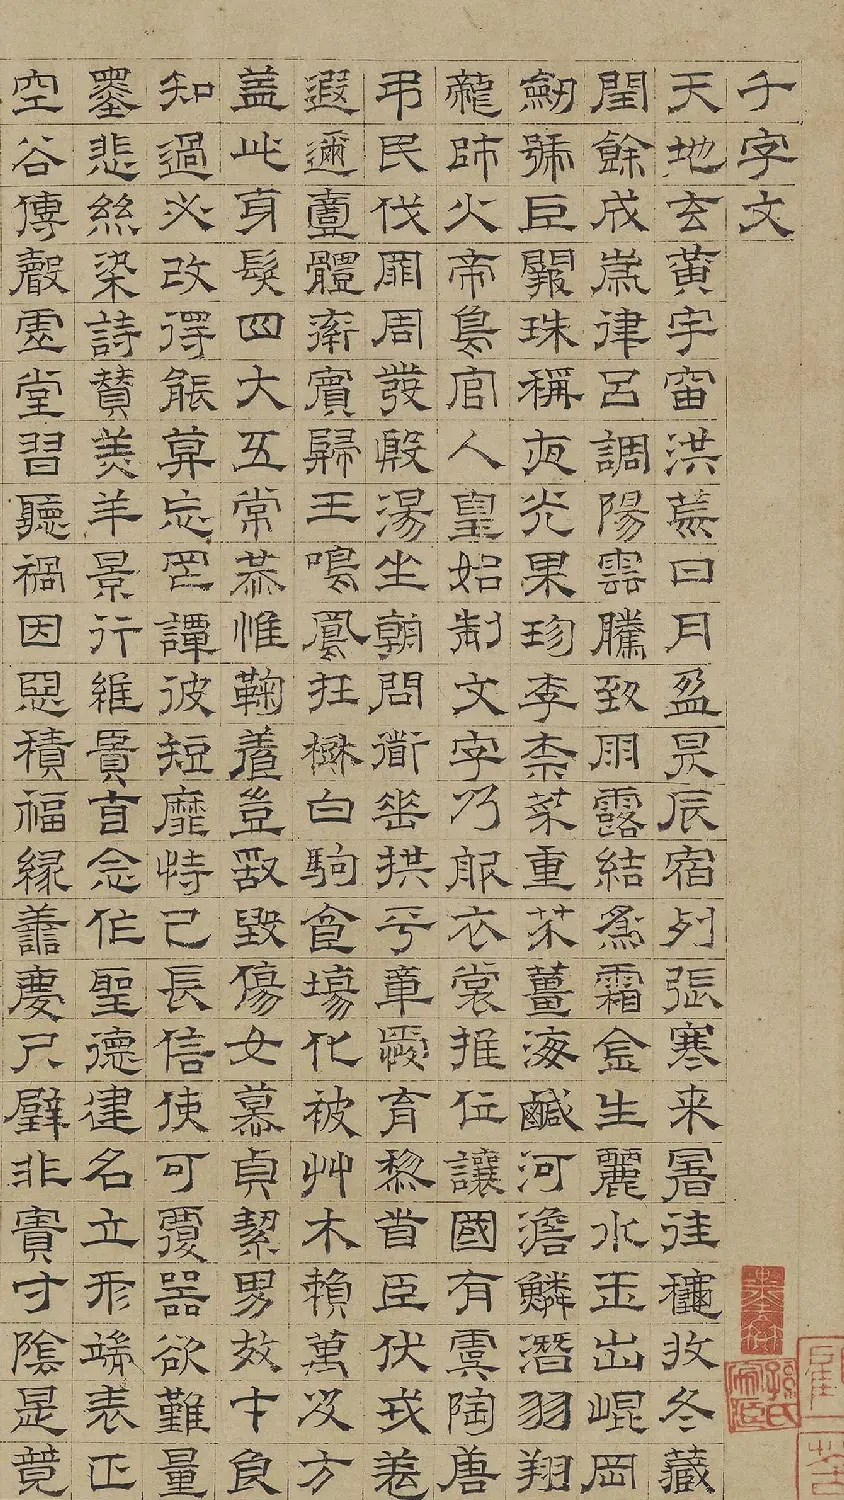 千字文
天地玄黃宇宙洪荒日月盈昃辰宿列張寒来暑往穐收冬藏
閏餘成歲律呂調陽雲騰致雨露結為霜金生麗水玉出崐岡
劒號巨闕珠稱夜光果珍李柰菜重芥薑海鹹河澹鱗潛羽翔
龍師火帝鳥官人皇始制文字乃服衣裳推位讓國有虞陶唐
弔民伐罪周發殷湯坐朝問道垂拱平章愛育黎首臣伏戎羌
遐邇壹體率賓歸王鳴鳳在樹白駒食場化被艸木賴萬及方
盖此身髮四大五常恭惟鞠養豈敢毀傷女慕貞絜男效才良
知過必改得能莫忘罔譚彼短靡恃己長信使可覆器欲難量
墨悲絲染詩贊羔羊景行維賢克念作聖德建名立形端表正
空谷傳聲虛堂習聽禍因惡積福緣善慶尺璧非寶寸陰是競